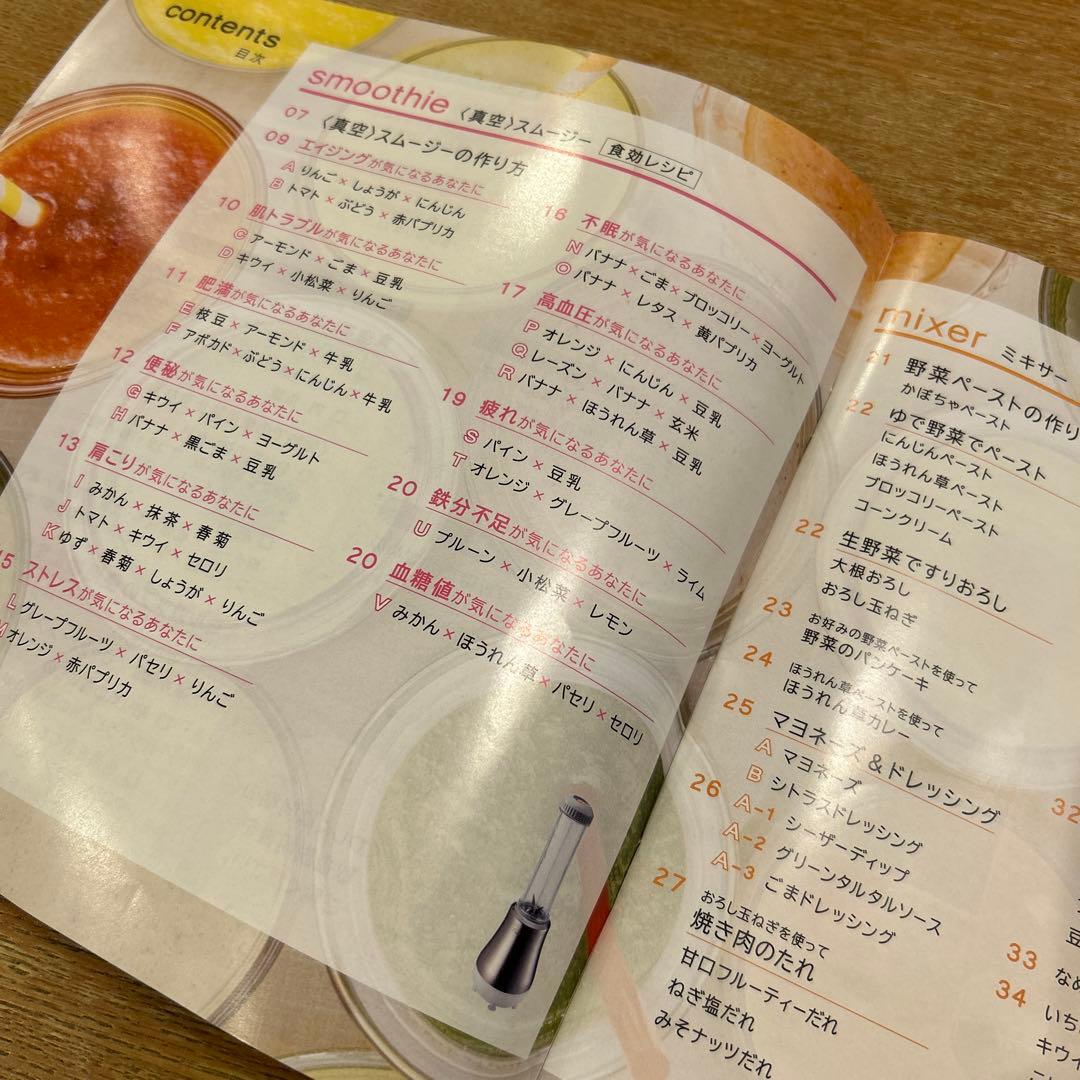 contents
目次
smoothie 〈真空〉スムージー 食効レシピ
07 〈真空〉スムージーの作り方
09 エイジングが気になるあなたに
A りんご×しょうが×にんじん
B トマト×ぶどう×赤パプリカ
10 肌トラブルが気になるあなたに
C アーモンド×ごま×豆乳
D キウイ×小松菜×りんご
11 肥満が気になるあなたに
E 枝豆×アーモンド×牛乳
F アボカド×ぶどう×にんじん×牛乳
12 便秘が気になるあなたに
G キウイ×パイン×ヨーグルト
H バナナ×黒ごま×豆乳
13 肩こりが気になるあなたに
I みかん×抹茶×春菊
J トマト×キウイ×セロリ
K ゆず×春菊×しょうが×りんご
5 ストレスが気になるあなたに
L グレープフルーツ×パセリ×りんご
オレンジ×赤パプリカ
16 不眠が気になるあなたに
N バナナ×ごま×ブロッコリー×ヨーグルト
O バナナ×レタス×黄パプリカ
17 高血圧が気になるあなたに
P オレンジ×にんじん×豆乳
Q レーズン×バナナ×玄米
R バナナ×ほうれん草×豆乳
19 疲れが気になるあなたに
S パイン×豆乳
T オレンジ×グレープフルーツ×ライム
20 鉄分不足が気になるあなたに
U プルーン×小松菜×レモン
20 血糖値が気になるあなたに
V みかん×ほうれん草×パセリ×セロリ
mixer ミキサー
21 野菜ペーストの作り
かぼちゃペースト
22 ゆで野菜でペースト
にんじんペースト
ほうれん草ペースト
ブロッコリーペースト
コーンクリーム
22 生野菜ですりおろし
大根おろし
おろし玉ねぎ
23 お好みの野菜ペーストを使って
野菜のパンケーキ
24 ほうれん草ペーストを使って
ほうれん草カレー
25 マヨネーズ&ドレッシング
A マヨネーズ
B シトラスドレッシング
26 A-1 シーザーディップ
A-2 グリーンタルタルソース
A-3 ごまドレッシング
27 おろし玉ねぎを使って
焼き肉のたれ
甘口フルーティーだれ
ねぎ塩だれ
みそナッツだれ
32
豆
33 なめ
34 いち
キウイ